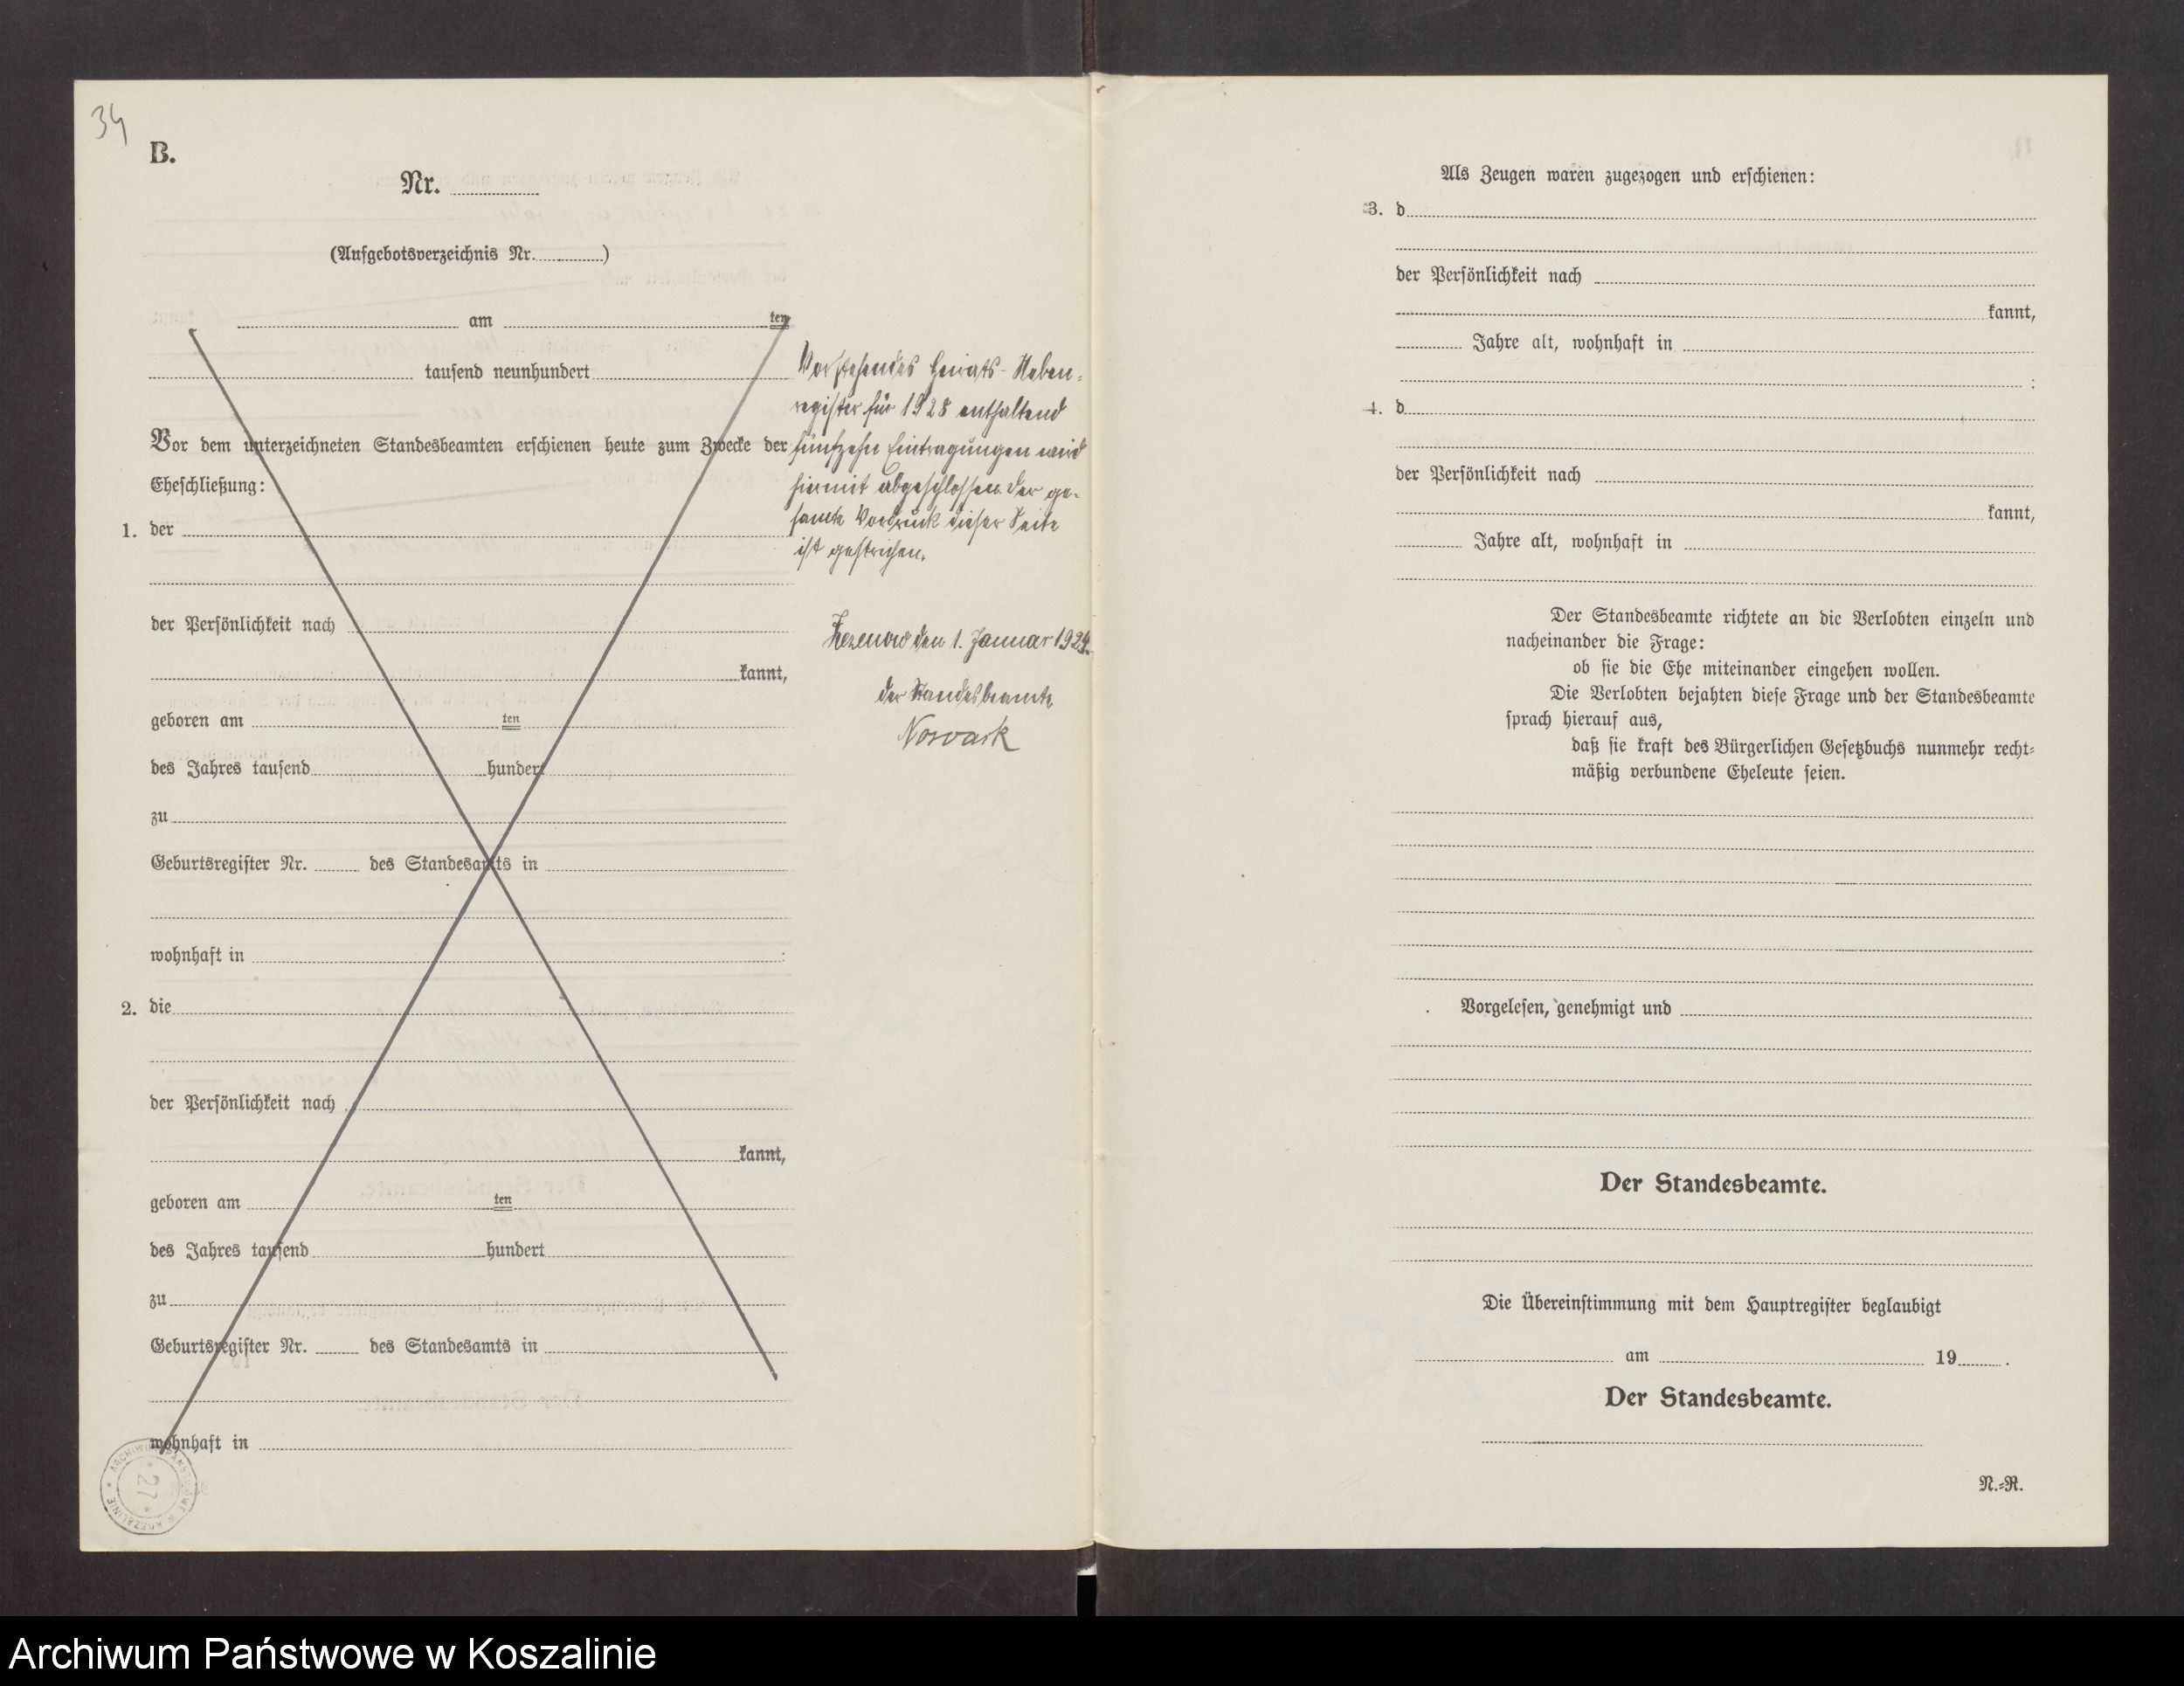 34
B.
Nr.
(Aufgebotsverzeichnis Nr. )
am ten
tausend neunhundert
Vor dem unterzeichneten Standesbeamten erschienen heute zum Zwecke der
Eheschließung:
1. der
der Persönlichkeit nach
kannt,
geboren am ten
des Jahres tausend hundert
zu
Geburtsregister Nr. des Standesamts in
wohnhaft in :
2. die
der Persönlichkeit nach
kannt,
geboren am ten
des Jahres tausend hundert
zu
Geburtsregister Nr. des Standesamts in
wohnhaft in
ARCHIWUM PAŃSTWOWE W KOSZALINIE
27
Vorstehendes Heirats-Neben-
register für 1928 enthaltend
fünfzehn Eintragungen wird
hiermit abgeschlossen. Der ge-
samte Vordruck dieser Seite
ist gestrichen.
den 1. Januar 1929.
der Standesbeamte
Nowack
Als Zeugen waren zugezogen und erschienen:
3. d
der Persönlichkeit nach
kannt,
Jahre alt, wohnhaft in
:
4. d
der Persönlichkeit nach
kannt,
Jahre alt, wohnhaft in
Der Standesbeamte richtete an die Verlobten einzeln und
nacheinander die Frage:
ob sie die Ehe miteinander eingehen wollen.
Die Verlobten bejahten diese Frage und der Standesbeamte
sprach hierauf aus,
daß sie kraft des Bürgerlichen Gesetzbuchs nunmehr recht-
mäßig verbundene Eheleute seien.
Vorgelesen, genehmigt und
Der Standesbeamte.
Die Übereinstimmung mit dem Hauptregister beglaubigt
am 19 .
Der Standesbeamte.
N.-R.
Archiwum Państwowe w Koszalinie